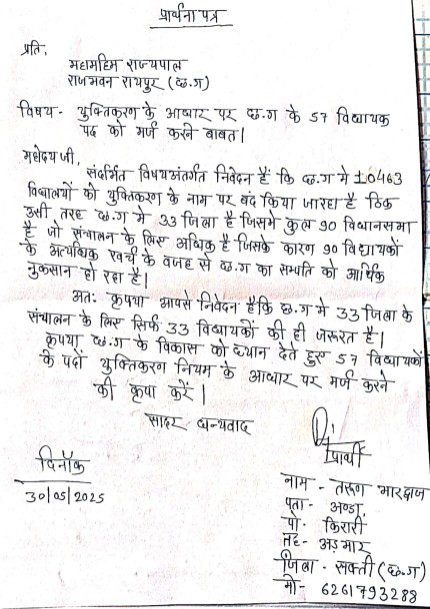 प्रार्थना पत्र
प्रति,
महामहिम राज्यपाल
राजभवन रायपुर (छ.ग)
विषय - युक्तिकरण के आधार पर छ.ग के 57 विधायक
पद को मर्ज करने बाबत।
महोदय जी,
संदर्भित विषयअंतर्गत निवेदन है कि छ.ग मे 10463
विद्यालयों को युक्तिकरण के नाम पर बंद किया जारहा है ठिक
उसी तरह छ.ग मे 33 जिला है जिसमे कुल 90 विधानसभा
है जो संचालन के लिए अधिक है जिसके कारण 90 विधायकों
के अत्यधिक खर्च के वजह से छ.ग का सम्पति को आर्थिक
नुकसान हो रहा है।
अतः कृपया आपसे निवेदन हैकि छ.ग मे 33 जिला के
संचालन के लिए सिर्फ 33 विधायकों की ही जरूरत है।
कृपया छ.ग के विकास को ध्यान देते हुए 57 विधायकों
के पदों युक्तिकरण नियम के आधार पर मर्ज करने
की कृपा करें।
सादर धन्यवाद
प्रार्थी
दिनाँक
30/05/2025
नाम - तरूण भारद्वाज
पता - अण्डा,
पो. किरारी
तह - अड़भार
जिला - सक्ती (छ.ग)
मो - 6261793288